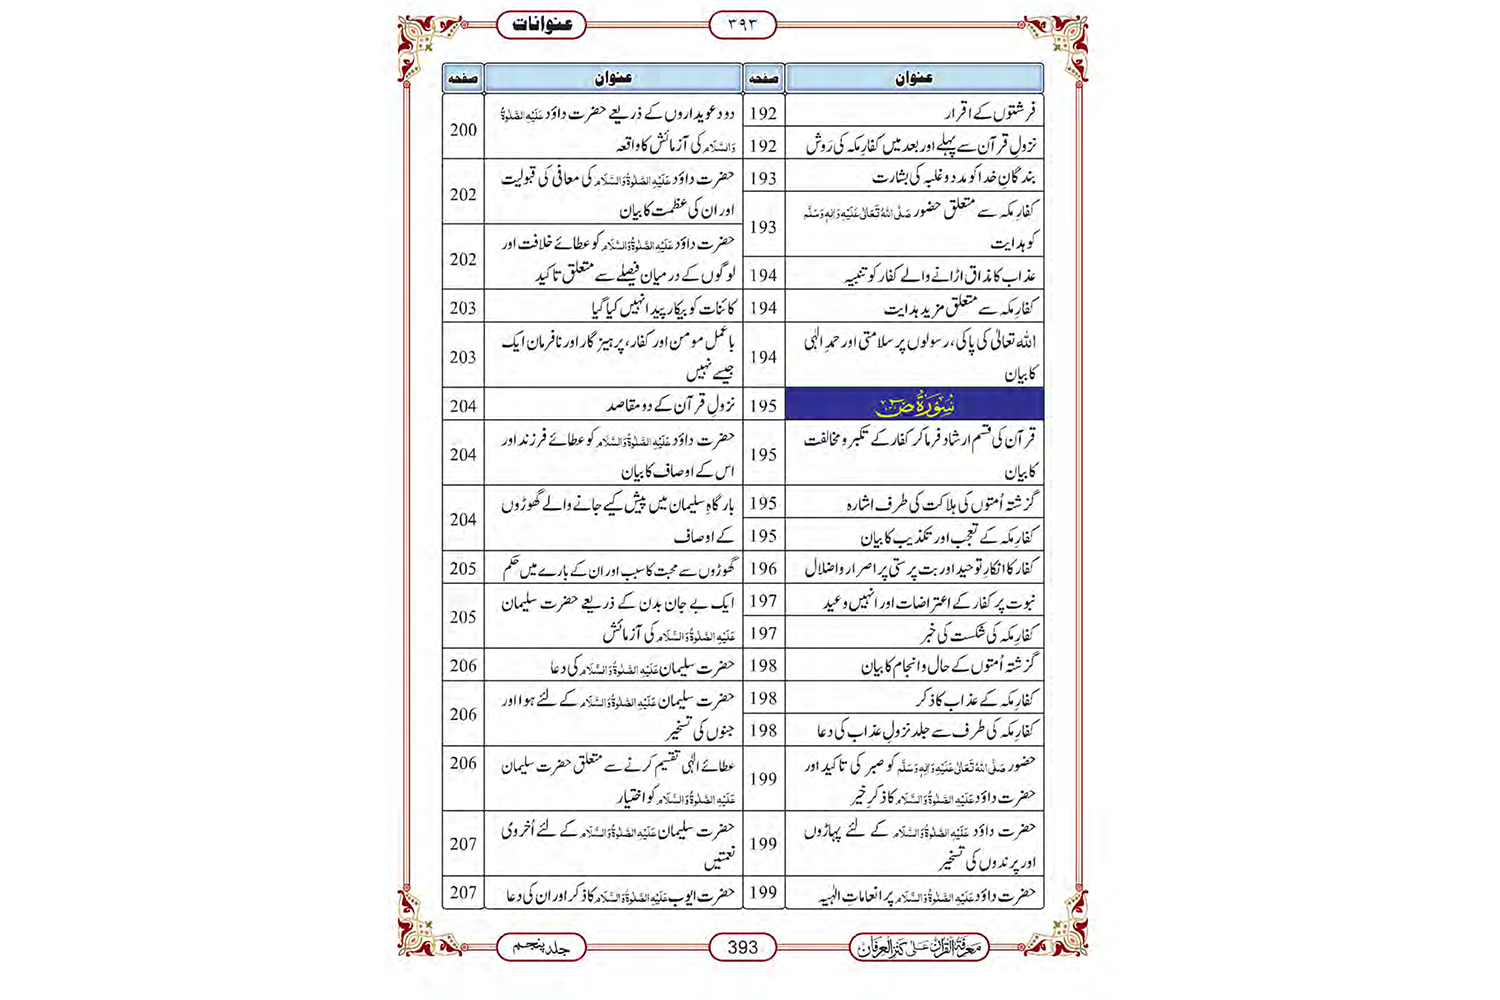 عنوانات
۳۹۳
عنوان
صفحہ
عنوان
صفحہ
فرشتوں کے اقرار
192
نزولِ قرآن سے پہلے اور بعد میں کفارِ مکہ کی رَوِش
192
بندگانِ خدا کو مدد و غلبہ کی بشارت
193
کفارِ مکہ سے متعلق حضور صَلَّی اللہُ تَعَالٰی عَلَیْہِ وَاٰلِہٖ وَسَلَّم
کو ہدایت
193
عذاب کا مذاق اڑانے والے کفار کو تنبیہ
194
کفارِ مکہ سے متعلق مزید ہدایت
194
اللہ تعالیٰ کی پاکی، رسولوں پر سلامتی اور حمدِ الٰہی
کا بیان
194
سُوْرَۃُ صٓ
195
قرآن کی قسم ارشاد فرما کر کفار کے تکبر و مخالفت
کا بیان
195
گزشتہ اُمتوں کی ہلاکت کی طرف اشارہ
195
کفارِ مکہ کے تعجب اور تکذیب کا بیان
195
کفار کا انکارِ توحید اور بت پرستی پر اصرار و اضلال
196
نبوت پر کفار کے اعتراضات اور انہیں وعید
197
کفارِ مکہ کی شکست کی خبر
197
گزشتہ اُمتوں کے حال و انجام کا بیان
198
کفارِ مکہ کے عذاب کا ذکر
198
کفارِ مکہ کی طرف سے جلد نزولِ عذاب کی دعا
198
حضور صَلَّی اللہُ تَعَالٰی عَلَیْہِ وَاٰلِہٖ وَسَلَّم کو صبر کی تاکید اور
حضرت داؤد عَلَیْہِ الصَّلٰوۃُ وَالسَّلَام کا ذکرِ خیر
199
حضرت داؤد عَلَیْہِ الصَّلٰوۃُ وَالسَّلَام کے لئے پہاڑوں
اور پرندوں کی تسخیر
199
حضرت داؤد عَلَیْہِ الصَّلٰوۃُ وَالسَّلَام پر انعاماتِ الٰہیہ
199
دو دعویداروں کے ذریعے حضرت داؤد عَلَیْہِ الصَّلٰوۃُ
وَالسَّلَام کی آزمائش کا واقعہ
200
حضرت داؤد عَلَیْہِ الصَّلٰوۃُ وَالسَّلَام کی معافی کی قبولیت
اور ان کی عظمت کا بیان
202
حضرت داؤد عَلَیْہِ الصَّلٰوۃُ وَالسَّلَام کو عطائے خلافت اور
لوگوں کے درمیان فیصلے سے متعلق تاکید
202
کائنات کو بیکار پیدا نہیں کیا گیا
203
باعمل مومن اور کفار، پرہیز گار اور نافرمان ایک
جیسے نہیں
203
نزولِ قرآن کے دو مقاصد
204
حضرت داؤد عَلَیْہِ الصَّلٰوۃُ وَالسَّلَام کو عطائے فرزند اور
اس کے اوصاف کا بیان
204
بارگاہِ سلیمان میں پیش کیے جانے والے گھوڑوں
کے اوصاف
204
گھوڑوں سے محبت کا سبب اور ان کے بارے میں حکم
205
ایک بے جان بدن کے ذریعے حضرت سلیمان
عَلَیْہِ الصَّلٰوۃُ وَالسَّلَام کی آزمائش
205
حضرت سلیمان عَلَیْہِ الصَّلٰوۃُ وَالسَّلَام کی دعا
206
حضرت سلیمان عَلَیْہِ الصَّلٰوۃُ وَالسَّلَام کے لئے ہوا اور
جنوں کی تسخیر
206
عطائے الٰہی تقسیم کرنے سے متعلق حضرت سلیمان
عَلَیْہِ الصَّلٰوۃُ وَالسَّلَام کو اختیار
206
حضرت سلیمان عَلَیْہِ الصَّلٰوۃُ وَالسَّلَام کے لئے اُخروی
نعمتیں
207
حضرت ایوب عَلَیْہِ الصَّلٰوۃُ وَالسَّلَام کا ذکر اور ان کی دعا
207
معرفۃ القرآن علیٰ کنز العرفان
393
جلد پنجم